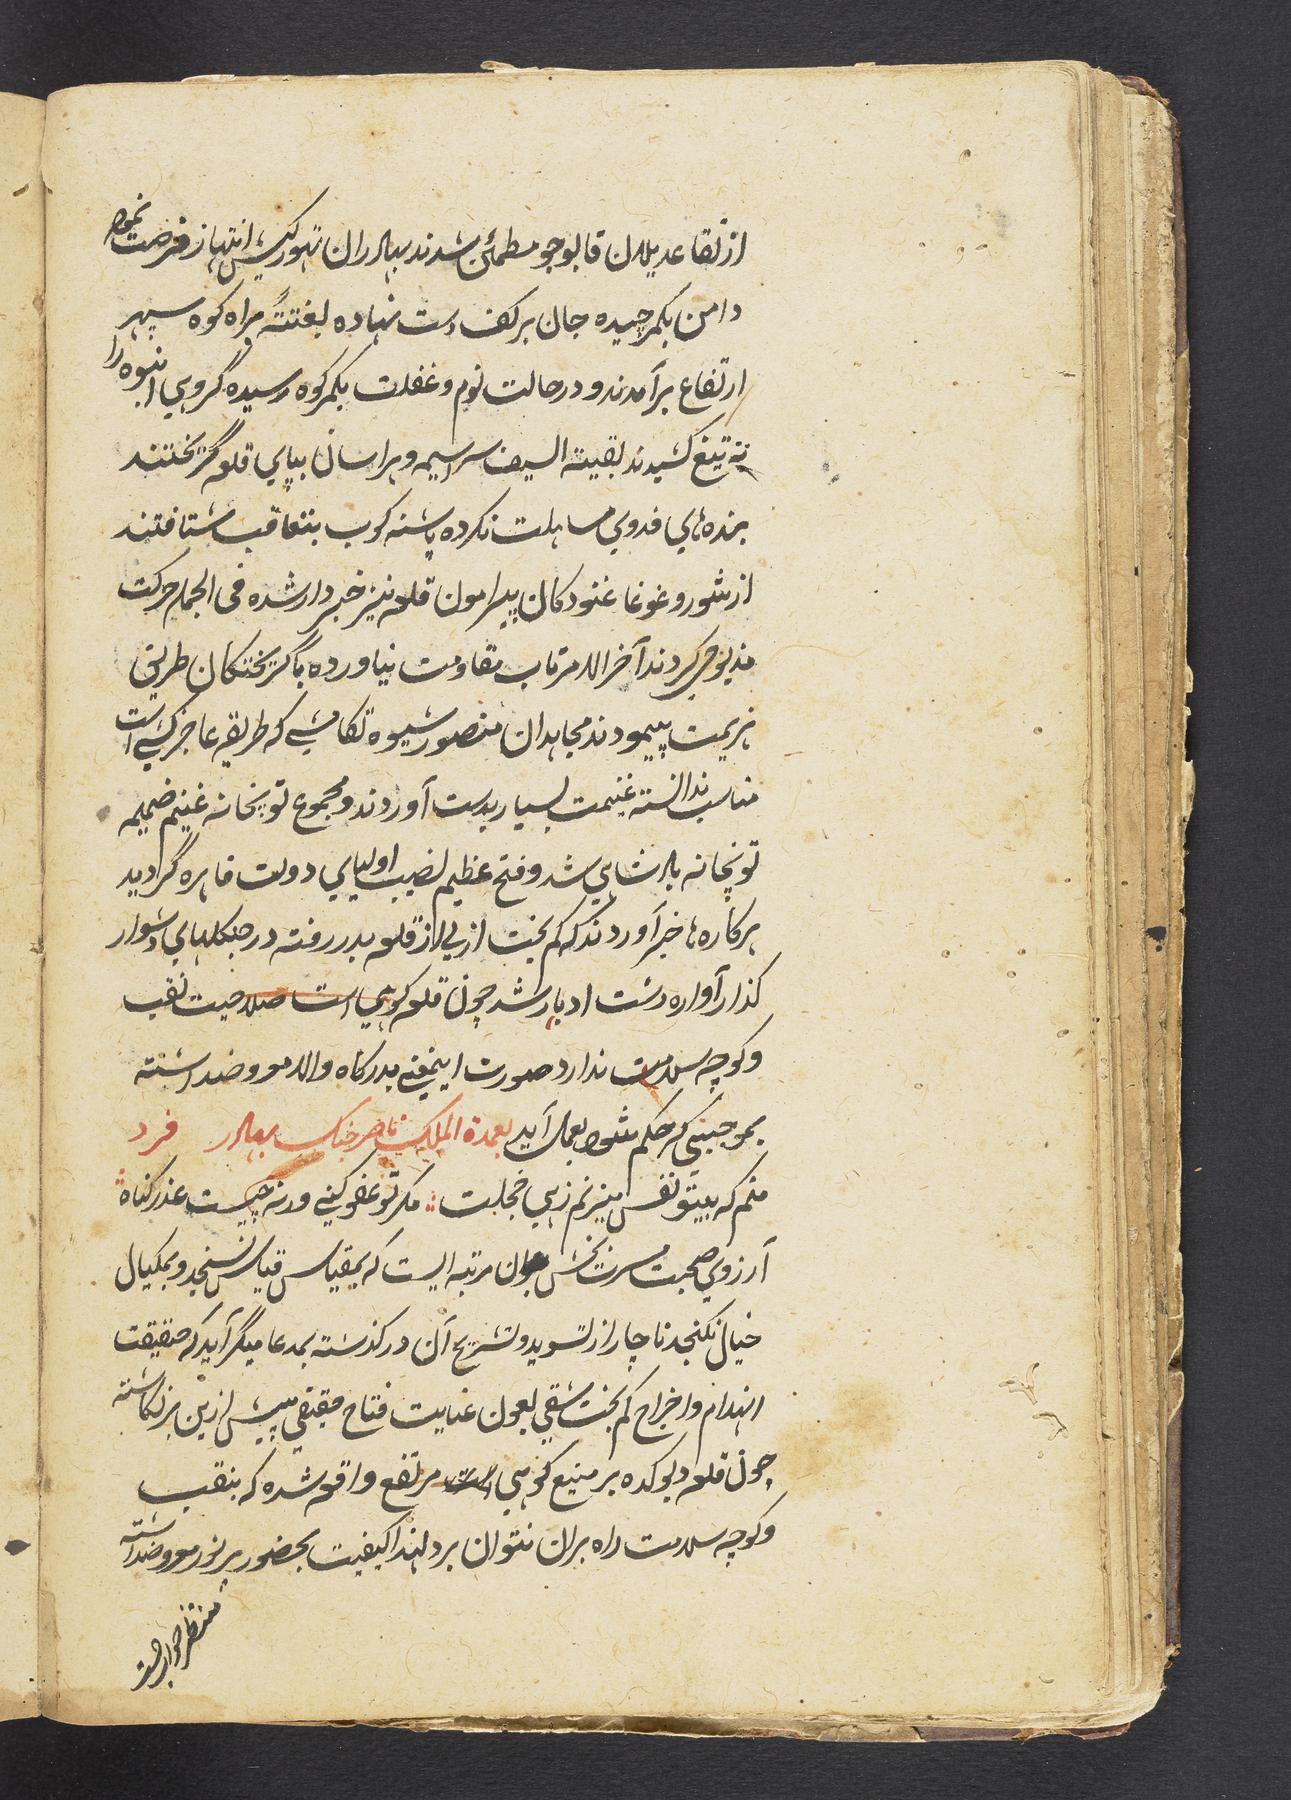 از تقاعد یلان قابوجو مطمئن شدند بهادران تهورکیش انتهاز فرصت نموده
دامن بکمر چیده جان برکف دست نهاده بغتتهً براه کوه سپهر
ارتفاع برآمدند و در حالت نوم و غفلت بکمر کوه رسیده گروهی انبوه را
ته تیغ کشیدند بقیته السیف سراسیمه و هراسان بپای قلعه گریختند
بنده‌های فدوی مساهلت نکرده پاشنه کوب بتعاقب شتافتند
از شور و غوغا غنودکان پیرامون قلعه نیز خبردار شده فی الجمله حرکت
مذبوحی کردند آخر الامر تاب مقاومت نیاورده با گریختکان طریق
هزیمت پیمودند مجاهدان منصور شیوه تکامشی که طریقه عاجزکشی است
مناسب ندانسته غنیمت بسیار بدست آوردند و مجموع توپخانه غنیم ضمیمه
توپخانه پادشاهی شد و فتح عظیم نصیب اولیای دولت قاهره گردید
هرکاره‌ها خبر آوردند که کم بخت ازلی از قلعه بدر رفته در جنکلهای دشوار
کذار آواره دشت ادبار شد چون قلعه کوهی است صلاحیت نقب
و کوچه سلامت ندارد صورت اینمعنی بدرکاه والا معروضداشته
بموجبیکه حکم شود بعمل آید بعمدة الملک ناصر جنک بهادر فرد
منم که بیتو نفس میزنم زهی خجلت مکر تو عفو کنی ورنه چیست عذر کناه
آرزوی صحبت مسرت بخش بدان مرتبه ایست که بمقیاس قیاس نسنجد و بمکیال
خیال نکنجد ناچار از تسوید و تشریح آن درکذشته بمدعا میگراید که حقیقت
انهدام و اخراج کم بخت شقی بعون عنایت فتاح حقیقی پیش ازین برنکاشته
چون قلعه دیوکده بر منیع کوهی است مرتفع واقع شده که بنقب
و کوچه سلامت راه بران نتوان برد لهذا کیفیت بحضور پرنور معروضداشته
منتظر جواب